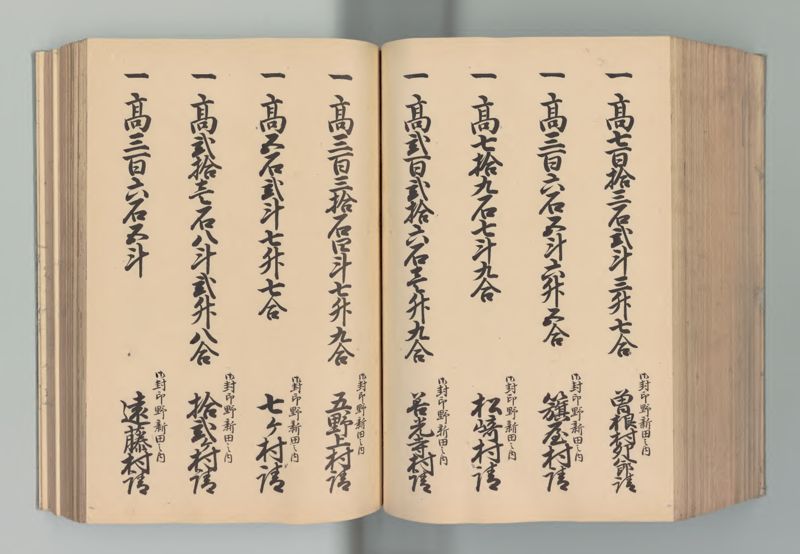 一 高七百拾三石弐斗三升七合
御封印野新田之内
曽根村
一 高三百六石五斗六升五合
御封印野新田之内
籏屋村請
一 高七拾九石七斗九合
松崎村請
一 高弐百弐拾六石壱升九合
御封印野新田之内
善光寺村請
一 高三百三拾石四斗七升九合
御封印野新田之内
五野上村請
一 高五石弐斗七升七合
御封印野新田之内
七ケ村請
一 高弐拾壱石八斗弐升八合
御封印野新田之内
拾弐ケ村請
一 高三百六石五斗
御封印野新田之内
遠藤村請